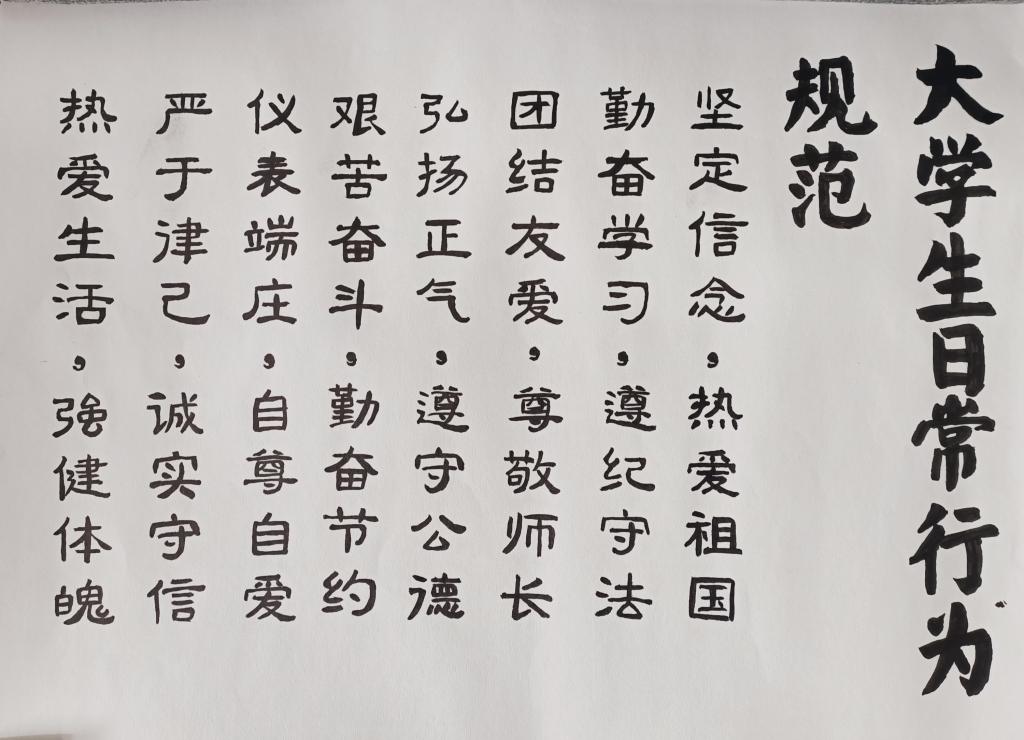 大学生日常行为
规范
坚定信念，热爱祖国
勤奋学习，遵纪守法
团结友爱，尊敬师长
弘扬正气，遵守公德
艰苦奋斗，勤奋节约
仪表端庄，自尊自爱
严于律己，诚实守信
热爱生活，强健体魄